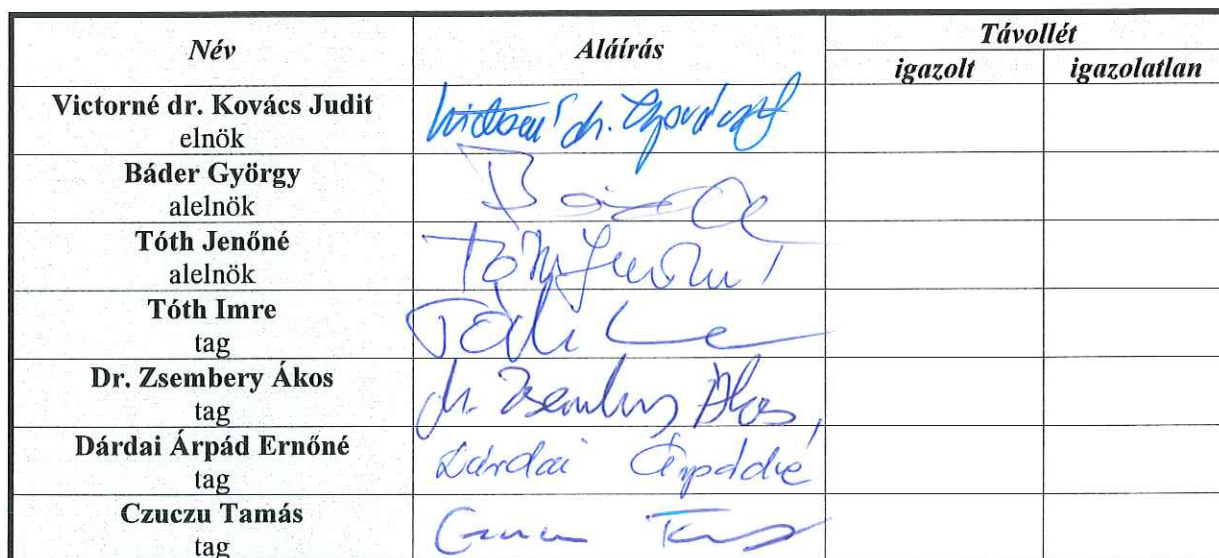 Név Aláírás Távollét
igazolt igazolatlan
Victorné dr. Kovács Judit
elnök
Báder György
alelnök
Tóth Jenőné
alelnök
Tóth Jenőné
Tóth Imre
tag
Tóth Imre
Dr. Zsembery Ákos
tag
dr. Zsembery Ákos
Dárdai Árpád Ernőné
tag
Dárdai Árpádné
Czuczu Tamás
tag